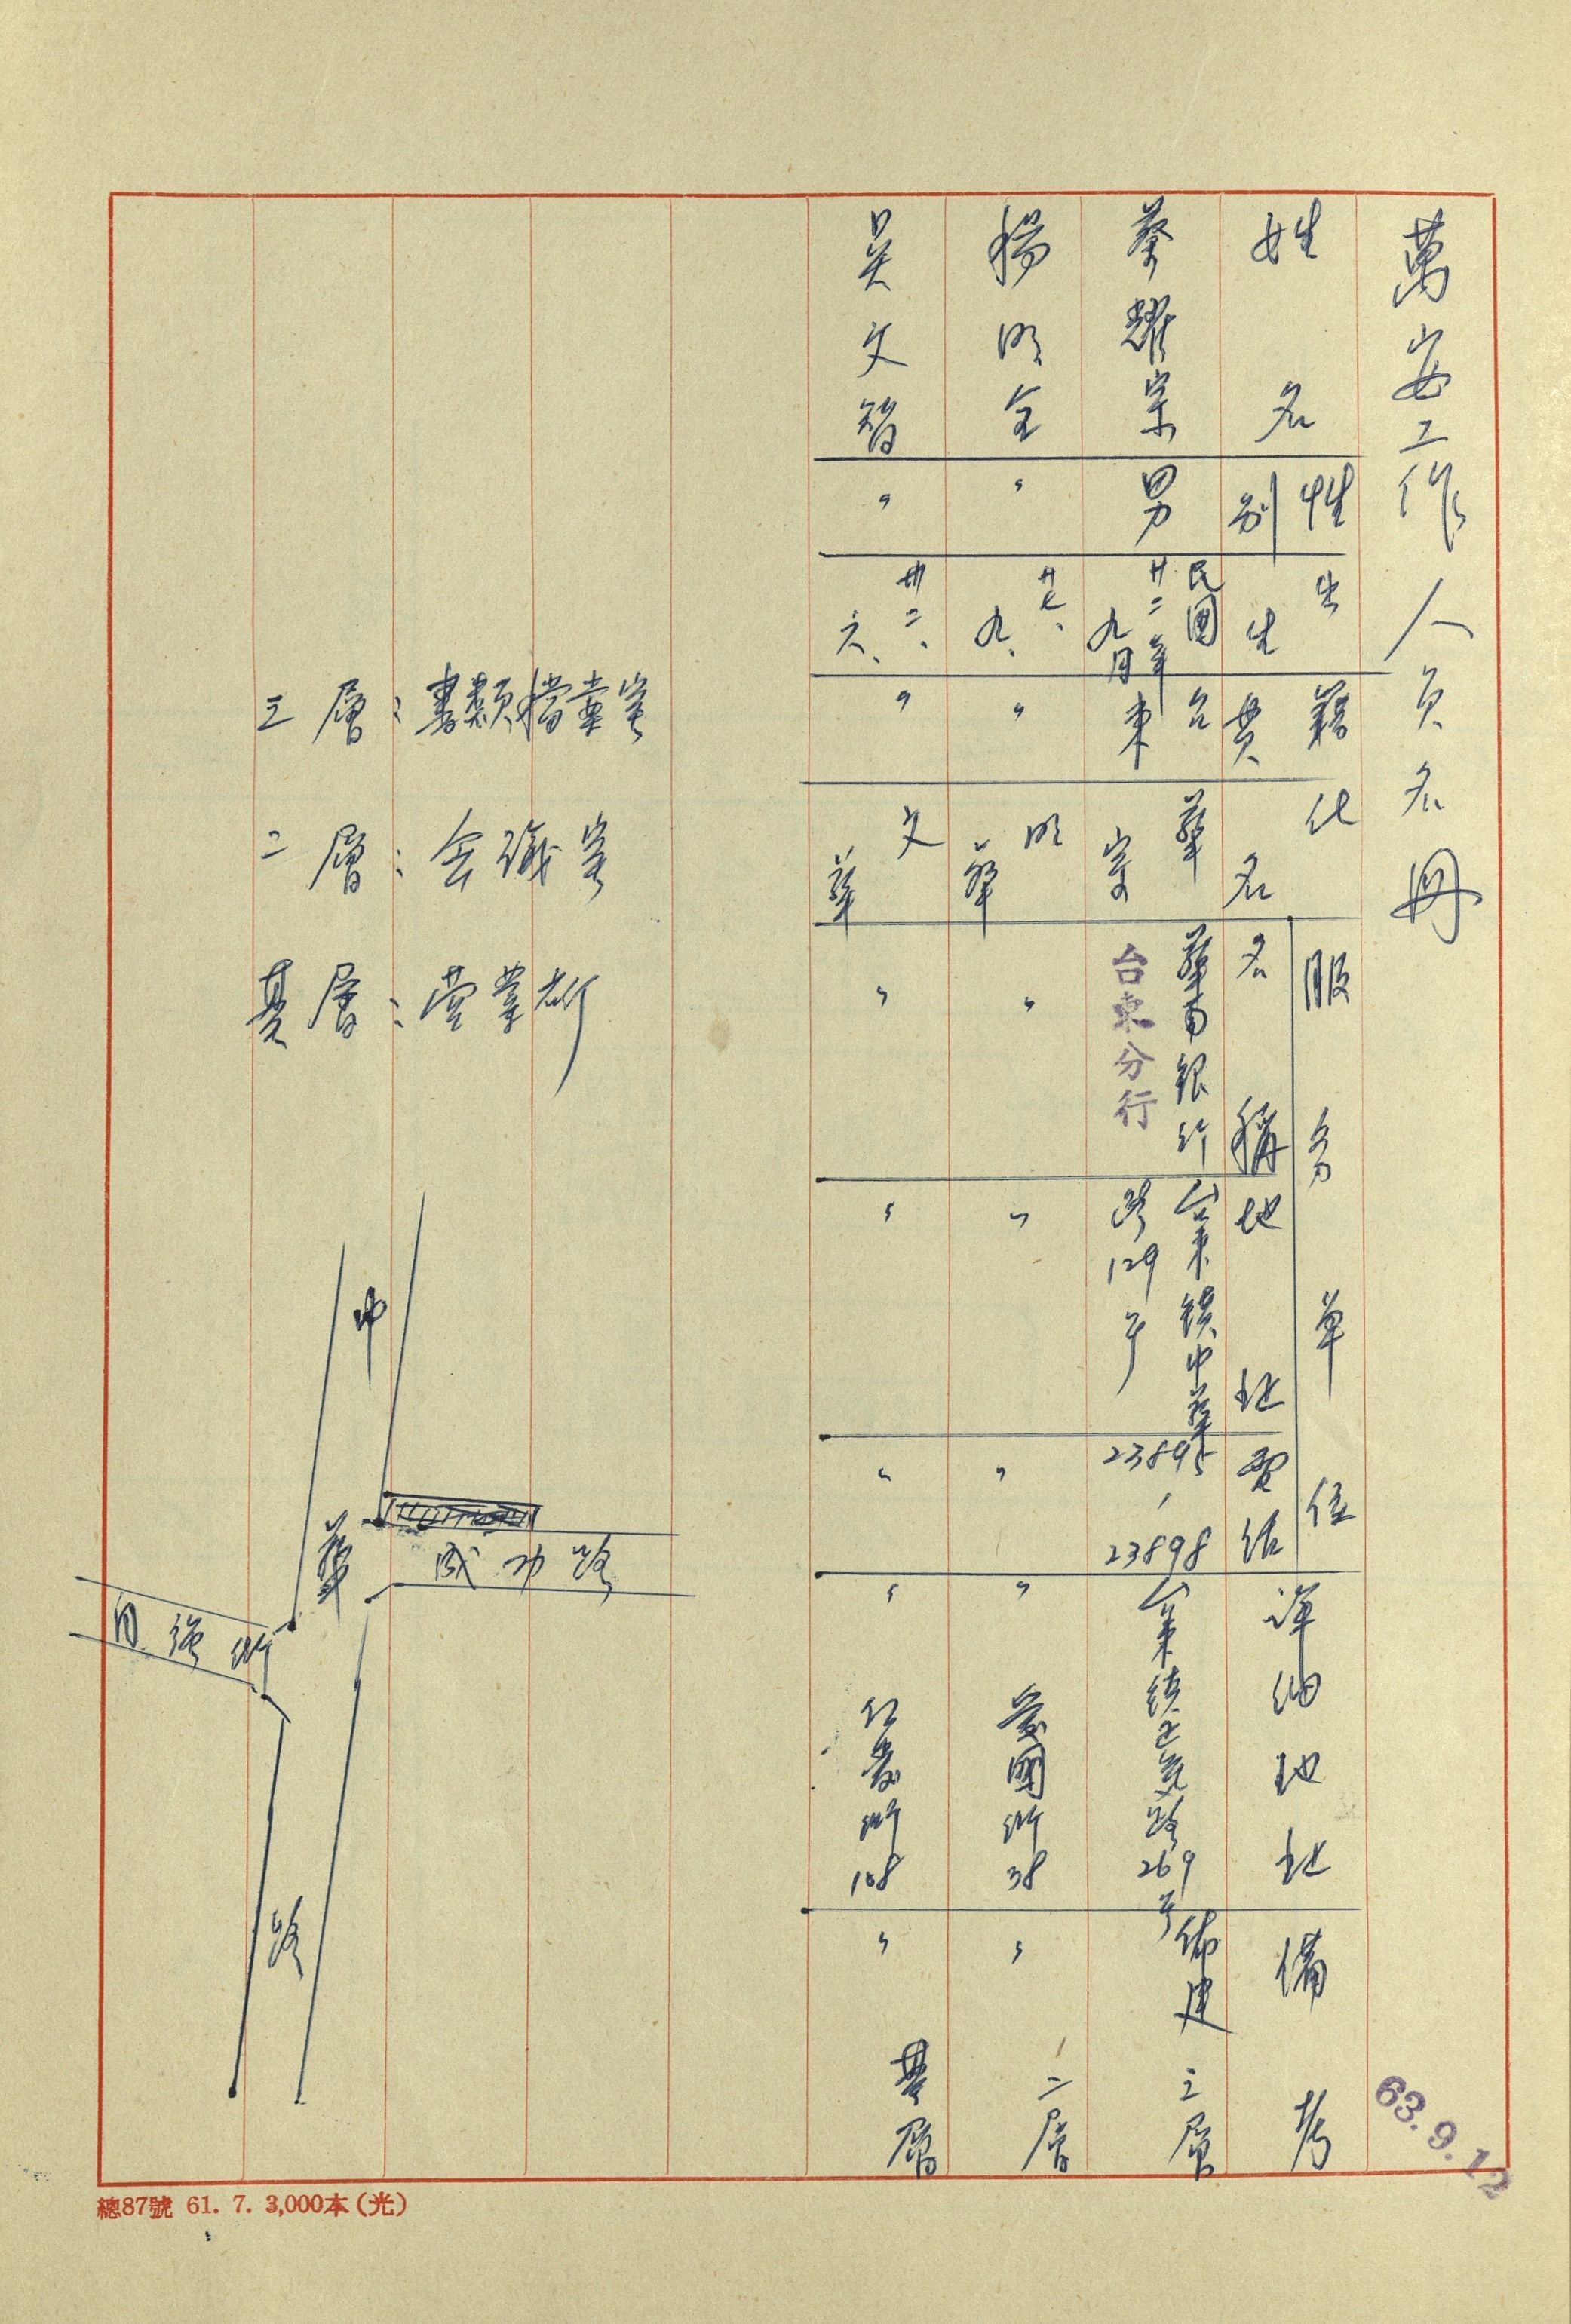 萬安工作人員名冊
姓名
性別
出生
籍貫
化名
服務單位
名稱
地址
電話
詳細地址
備考
蔡耀宗
男
民國
廿二年
九月
台東
華宗
華南銀行
台東分行
台東鎮中華
路129号
23895
23898
台東鎮正氣路269号
佈建
三層
楊明全
〃
廿七、
九、
〃
明華
〃
〃
〃
〃
愛國街38
〃
二層
吳文智
〃
卅二、
六、
〃
文華
〃
〃
〃
〃
仁愛街108
〃
基層
三層：書類檔案室
二層：会議室
基層：营業所
中華路
成功路
自強街
63.9.12
總87號 61. 7. 3,000本(光)